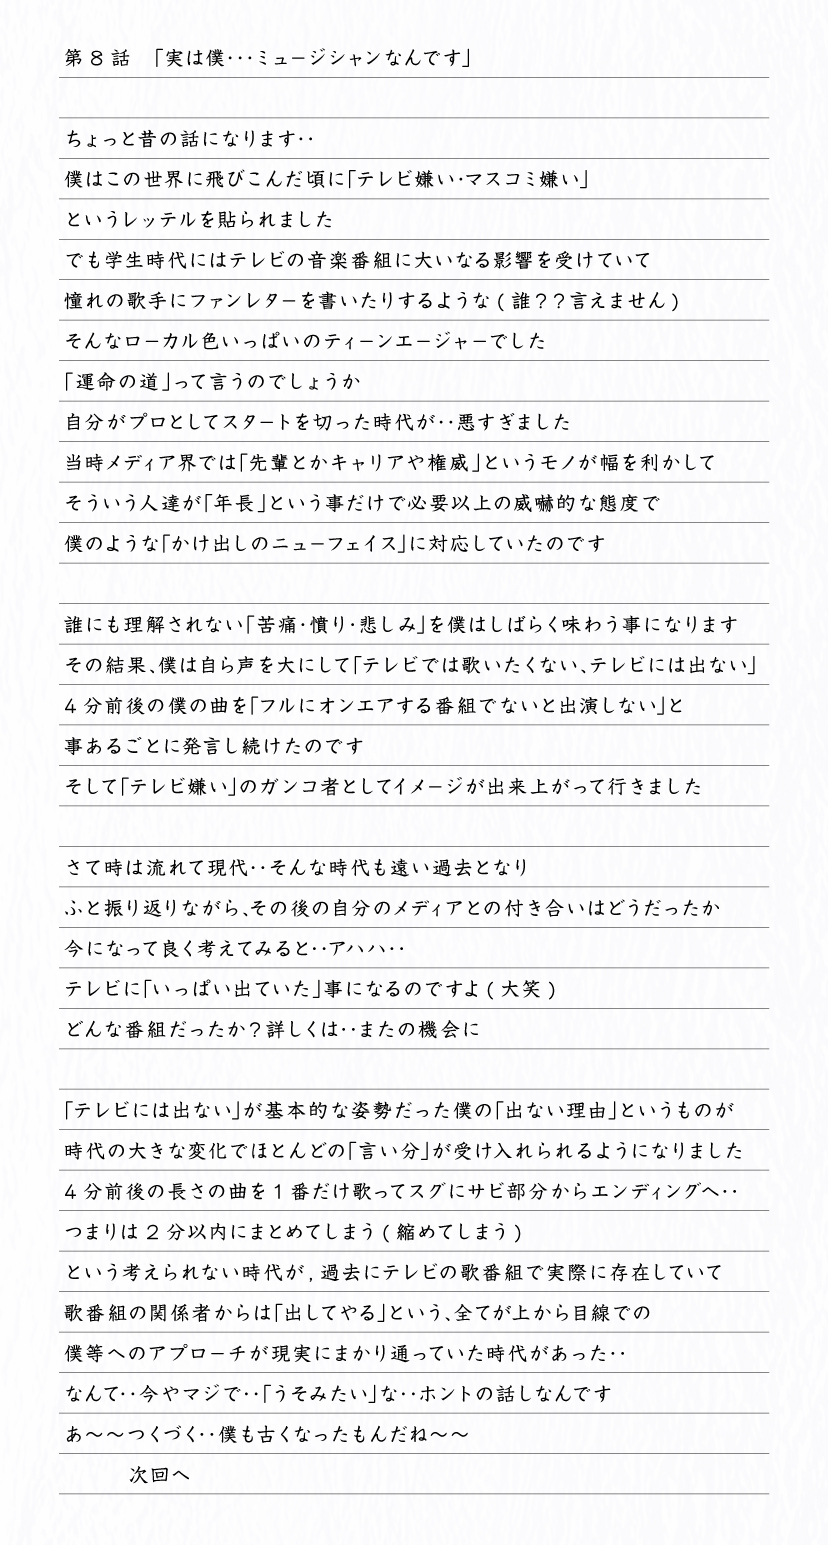 第8話 「実は僕・・・ミュージシャンなんです」
ちょっと昔の話になります・・
僕はこの世界に飛びこんだ頃に「テレビ嫌い・マスコミ嫌い」
というレッテルを貼られました
でも学生時代にはテレビの音楽番組に大いなる影響を受けていて
憧れの歌手にファンレターを書いたりするような(誰??言えません)
そんなローカル色いっぱいのティーンエージャーでした
「運命の道」って言うのでしょうか
自分がプロとしてスタートを切った時代が・・悪すぎました
当時メディア界では「先輩とかキャリアや権威」というモノが幅を利かして
そういう人達が「年長」という事だけで必要以上の威嚇的な態度で
僕のような「かけ出しのニューフェイス」に対応していたのです
誰にも理解されない「苦痛・憤り・悲しみ」を僕はしばらく味わう事になります
その結果、僕は自ら声を大にして「テレビでは歌いたくない、テレビには出ない」
4分前後の僕の曲を「フルにオンエアする番組でないと出演しない」と
事あるごとに発言し続けたのです
そして「テレビ嫌い」のガンコ者としてイメージが出来上がって行きました
さて時は流れて現代・・そんな時代も遠い過去となり
ふと振り返りながら、その後の自分のメディアとの付き合いはどうだったか
今になって良く考えてみると・・アハハ・・
テレビに「いっぱい出ていた」事になるのですよ(大笑)
どんな番組だったか?詳しくは・・またの機会に
「テレビには出ない」が基本的な姿勢だった僕の「出ない理由」というものが
時代の大きな変化でほとんどの「言い分」が受け入れられるようになりました
4分前後の長さの曲を1番だけ歌ってスグにサビ部分からエンディングへ・・
つまりは2分以内にまとめてしまう(縮めてしまう)
という考えられない時代が,過去にテレビの歌番組で実際に存在していて
歌番組の関係者からは「出してやる」という、全てが上から目線での
僕等へのアプローチが現実にまかり通っていた時代があった・・
なんて・・今やマジで・・「うそみたい」な・・ホントの話しなんです
あ〜〜つくづく・・僕も古くなったもんだね〜〜
次回へ